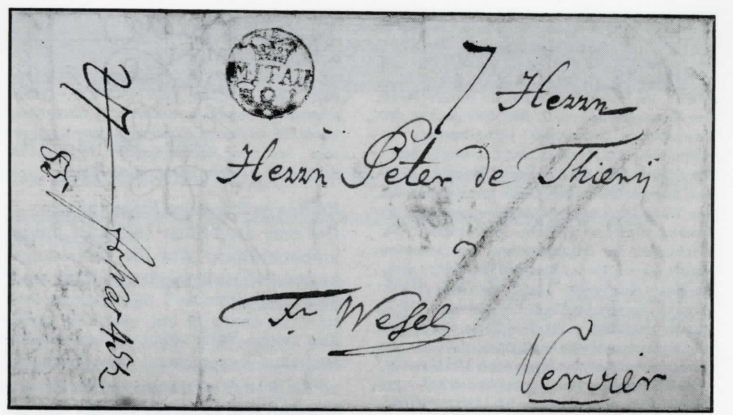 MITAU
7 Herrn
Herrn Peter de Thierij
a
Fr Wesel
Vervier